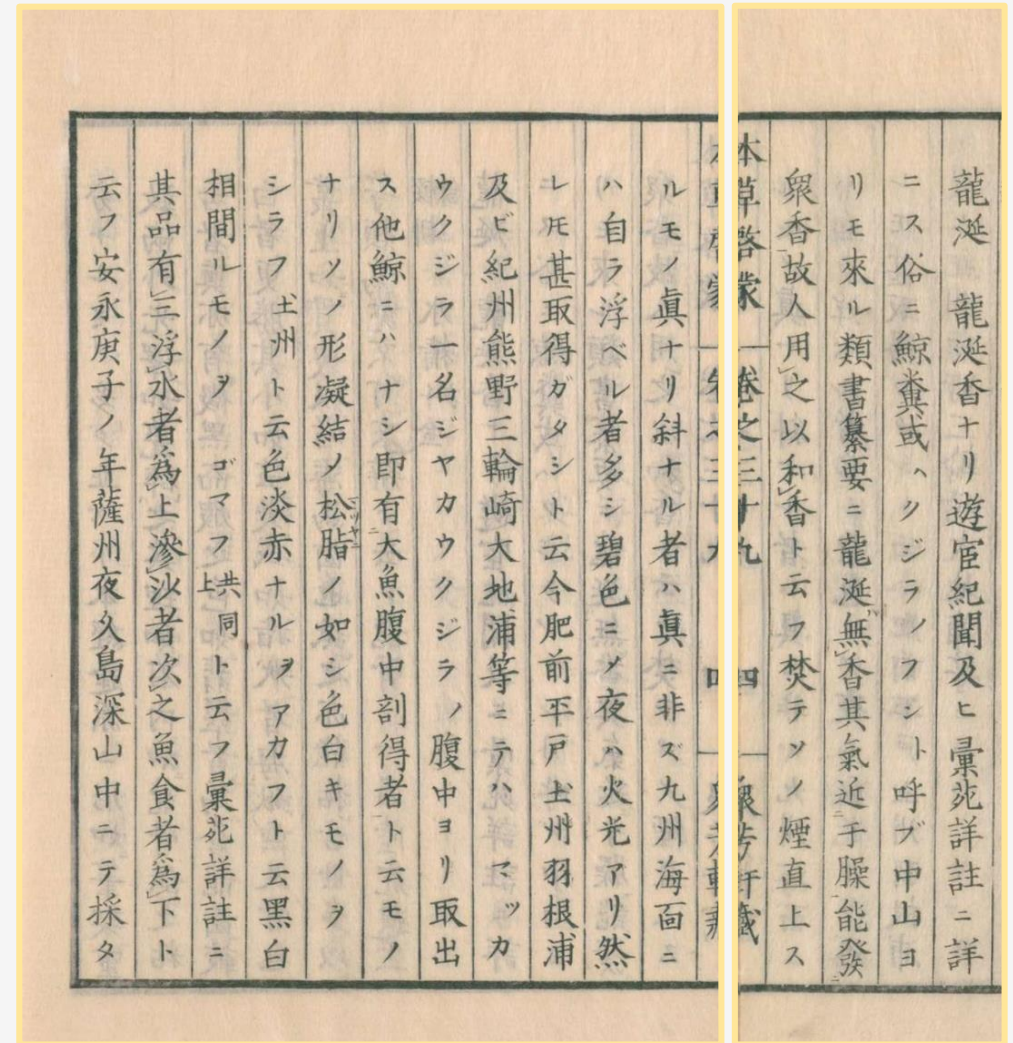 龍涎　龍涎香ナリ遊宦紀聞及ヒ彙苑詳註ニ詳
ニス俗ニ鯨糞或ハクジラノフント呼ブ中山ヨ
リモ來ル類書纂要ニ龍涎無香其氣近于臊能發
衆香故人用之以和香ト云フ焚テソノ煙直上ス
本草啓蒙　卷之三十九　四　衆芳軒藏
ルモノ眞ナリ斜ナル者ハ眞ニ非ズ九州海面ニ
ハ自ラ浮ベル者多シ碧色ニ〆夜ハ火光アリ然
レ𪜈甚取得ガタシト云今肥前平戸圡州羽根浦
及ビ紀州熊野三輪崎大地浦等ニテハマツカ
ウクジラ一名ジヤカウクジラノ腹中ヨリ取出
ス他鯨ニハナシ即有大魚腹中剖得者ト云モノ
ナリソノ形凝結〆松脂ノ如シ色白キモノヲ
シラフ圡州ト云色淡赤ナルヲアカフト云黒白
相間ルモノヲゴマフ共同上ト云フ彙苑詳註ニ
其品有三浮水者爲上滲沙者次之魚食者爲下ト
云フ安永庚子ノ年薩州夜久島深山中ニテ採タ